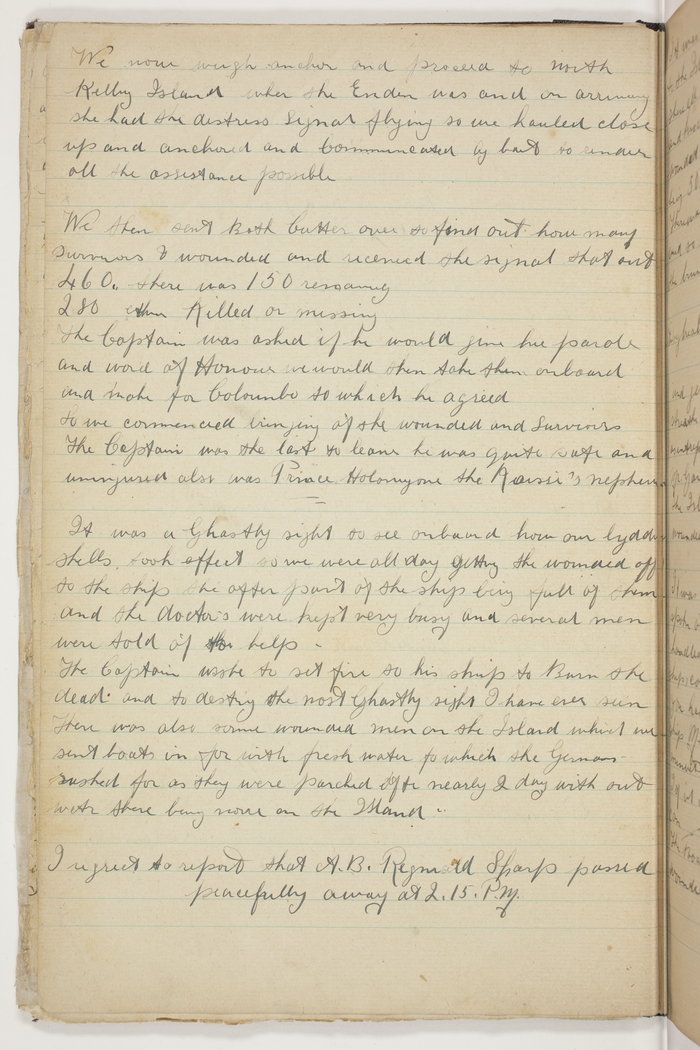 We now weigh anchor and proceed to north
Kelby Island wher the Enden was and on arriving
she had the distress signal flying so we hauled close
up and anchored and Communicated by boat to render
all the assistance possible
We then sent Both Cutter over to find out how many
survivors & wounded and received the signal that out
460. there was 150 remaining
280 Killed or missing
The Captain was asked if he would give his parole
and word of Honour we would then take them onboard
and make for Colombo to which he agreed
so we commenced bringing of the wounded and Survivors
The Captain was the last to leave he was quite safe and
uninjured also was Prince the Kaisi's nephew
It was a Ghastly sight to see onboard how our lyddite
shells took effect so we were all day getting the wounded off
to the ship the after part of the ship being full of them
and the doctors were kept very busy and several men
were told of to help -
The Captain to set fire to his ship to Burn the
dead and to destroy the most Ghastly sight I have ever seen
There was also some wounded men on the Island which we
sent boats in for with fresh water to which the Germans
rushed for as they were parched after nearly 2 day with out
with there being none on the Island
I regret to report that A.B. Reginald Sharp passed
peacefully away at 2.15. P.M.